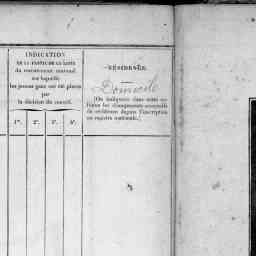 INDICATION
DE LA PARTIE DE LA LISTE
du recensement cantonal
sur laquelle
les jeunes gens ont été placés
par
la décision du conseil.
1re. 2e. 3e. 4e.
RÉSIDENCE.
Domicile
(On indiquera dans cette co-
lonne les changements successifs
de résidence depuis l'inscription
au registre matricule.)